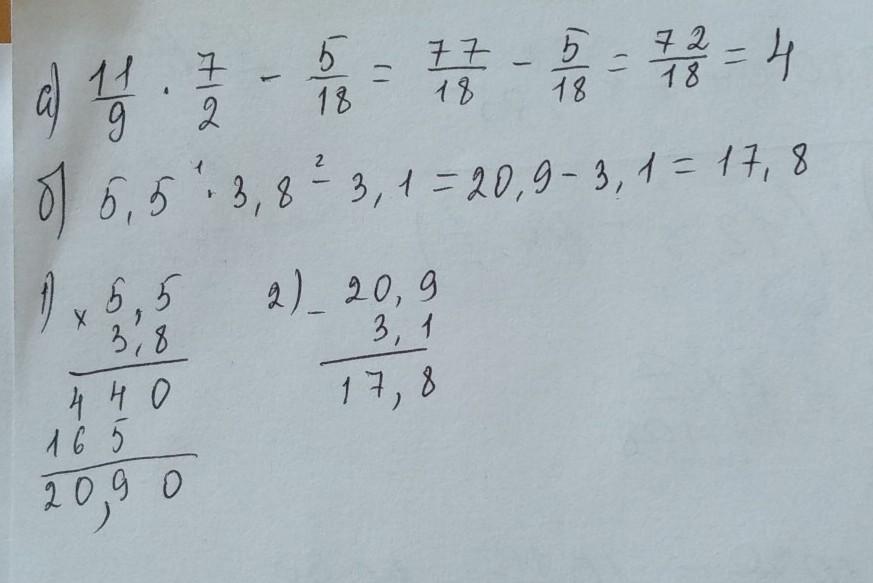 а) 11/9 · 7/2 - 5/18 = 77/18 - 5/18 = 72/18 = 4
б) 5,5 ·¹ 3,8 -² 3,1 = 20,9 - 3,1 = 17,8
1) × 5,5
3,8
440
165
20,90
2) - 20,9
3,1
17,8